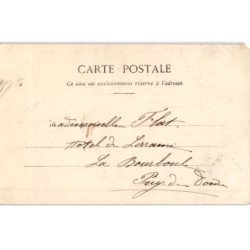 CARTE POSTALE
Ce côté est exclusivement réservé à l'adresse
Mademoiselle Flat
Hotel de Lorraine
La Bourboule
Puy-de-Dome